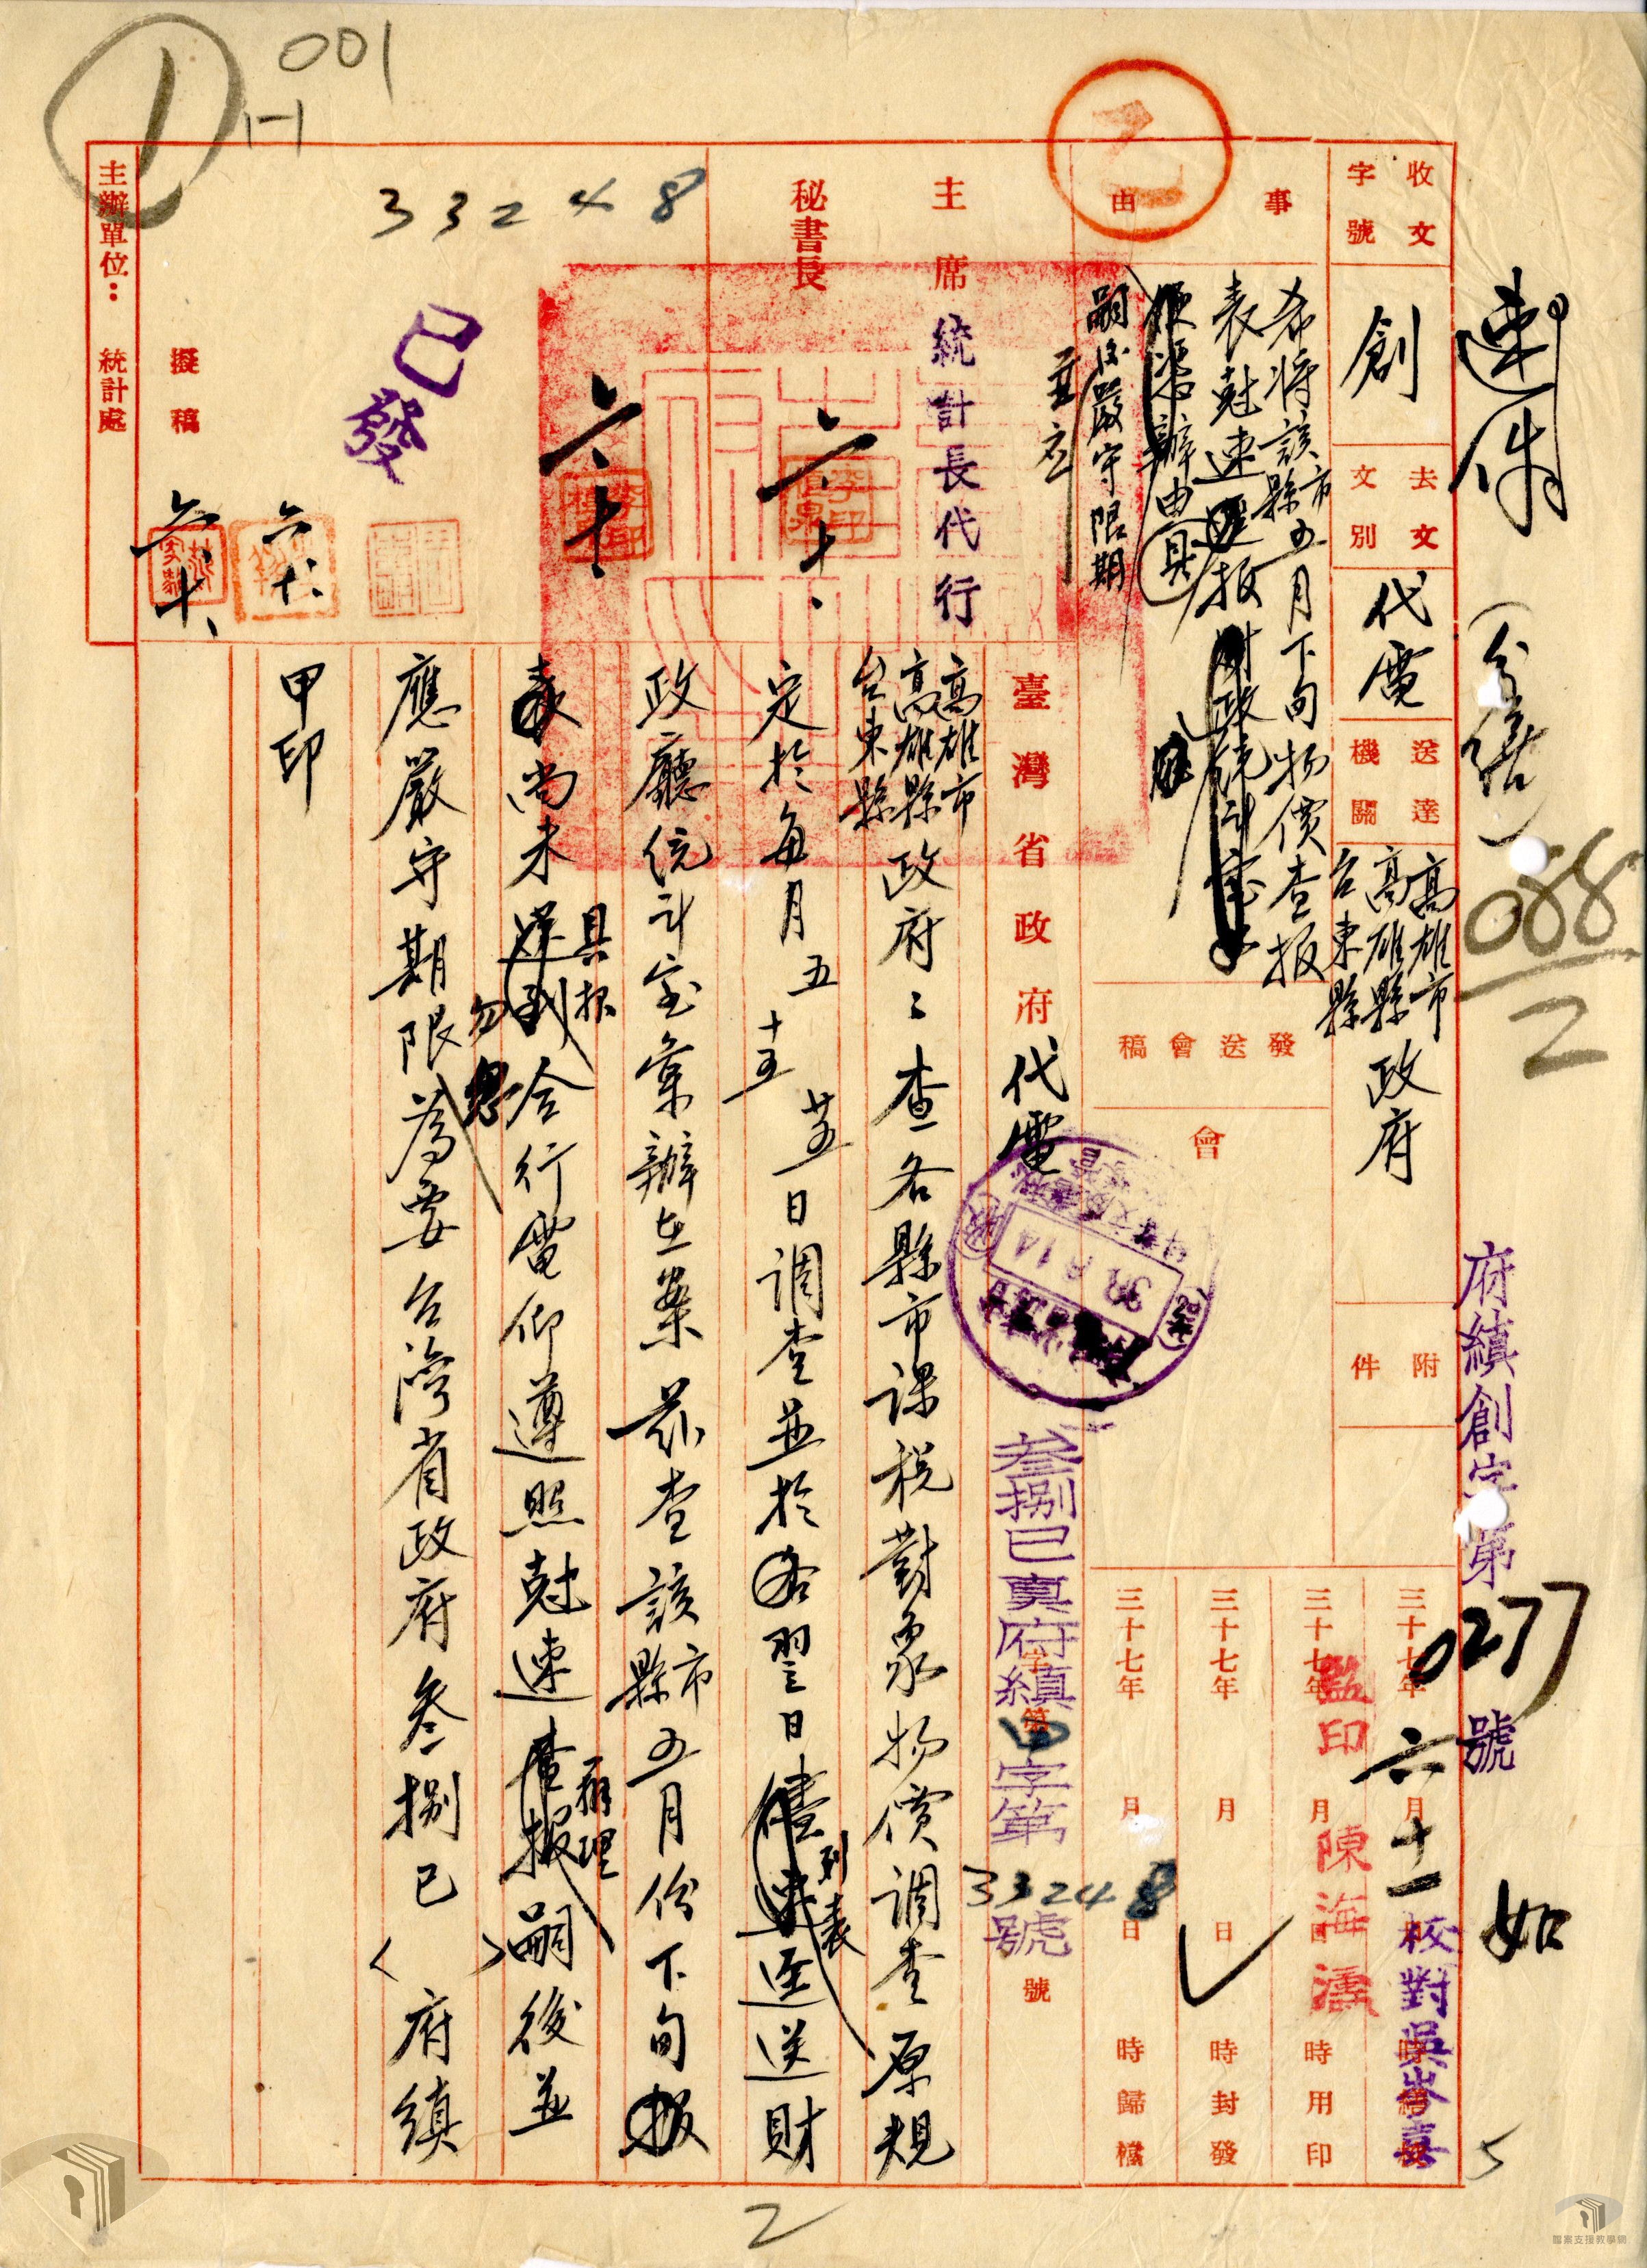 001
1-1
1
速件
(分繕)
088
2
府績創字第027號
如
收文字號
創
去文文別
代電
送達機關
高雄市
高雄縣
台東縣
政府
附件
事由
希將該縣市五月下旬物價查報
表尅速逕報財政廳統計室
俾憑辦由具
嗣後嚴守限期
發送會稿
會
三十七年 月 日 時 校對
六 十一
三十七年 月 日 時用印
三十七年 月 日 時封發
三十七年 月 日 時歸檔
監印陳海濡
校對吳岑喜
乙
主席
統計長代行
六、十、
秘書長
六、十、
33248
已發
擬稿
六、十、
六、十、
主辦單位：統計處
臺灣省政府代電
叁捌巳真府績甲字第33248號
字第 號
38.6.14
高雄市
高雄縣
台東縣
政府：查各縣市課稅對象物價調查原規
定於每月五 十五 廿五日調查並於各翌日儘速列表逕送財
政廳統計室彙辦在案茲查該縣市五月份下旬報
表尚未送到具報合行電仰遵照尅速查報辦理勿忽嗣後並
應嚴守期限為要台灣省政府叁捌巳( )府績
甲印
2
5
檔案支援教學網